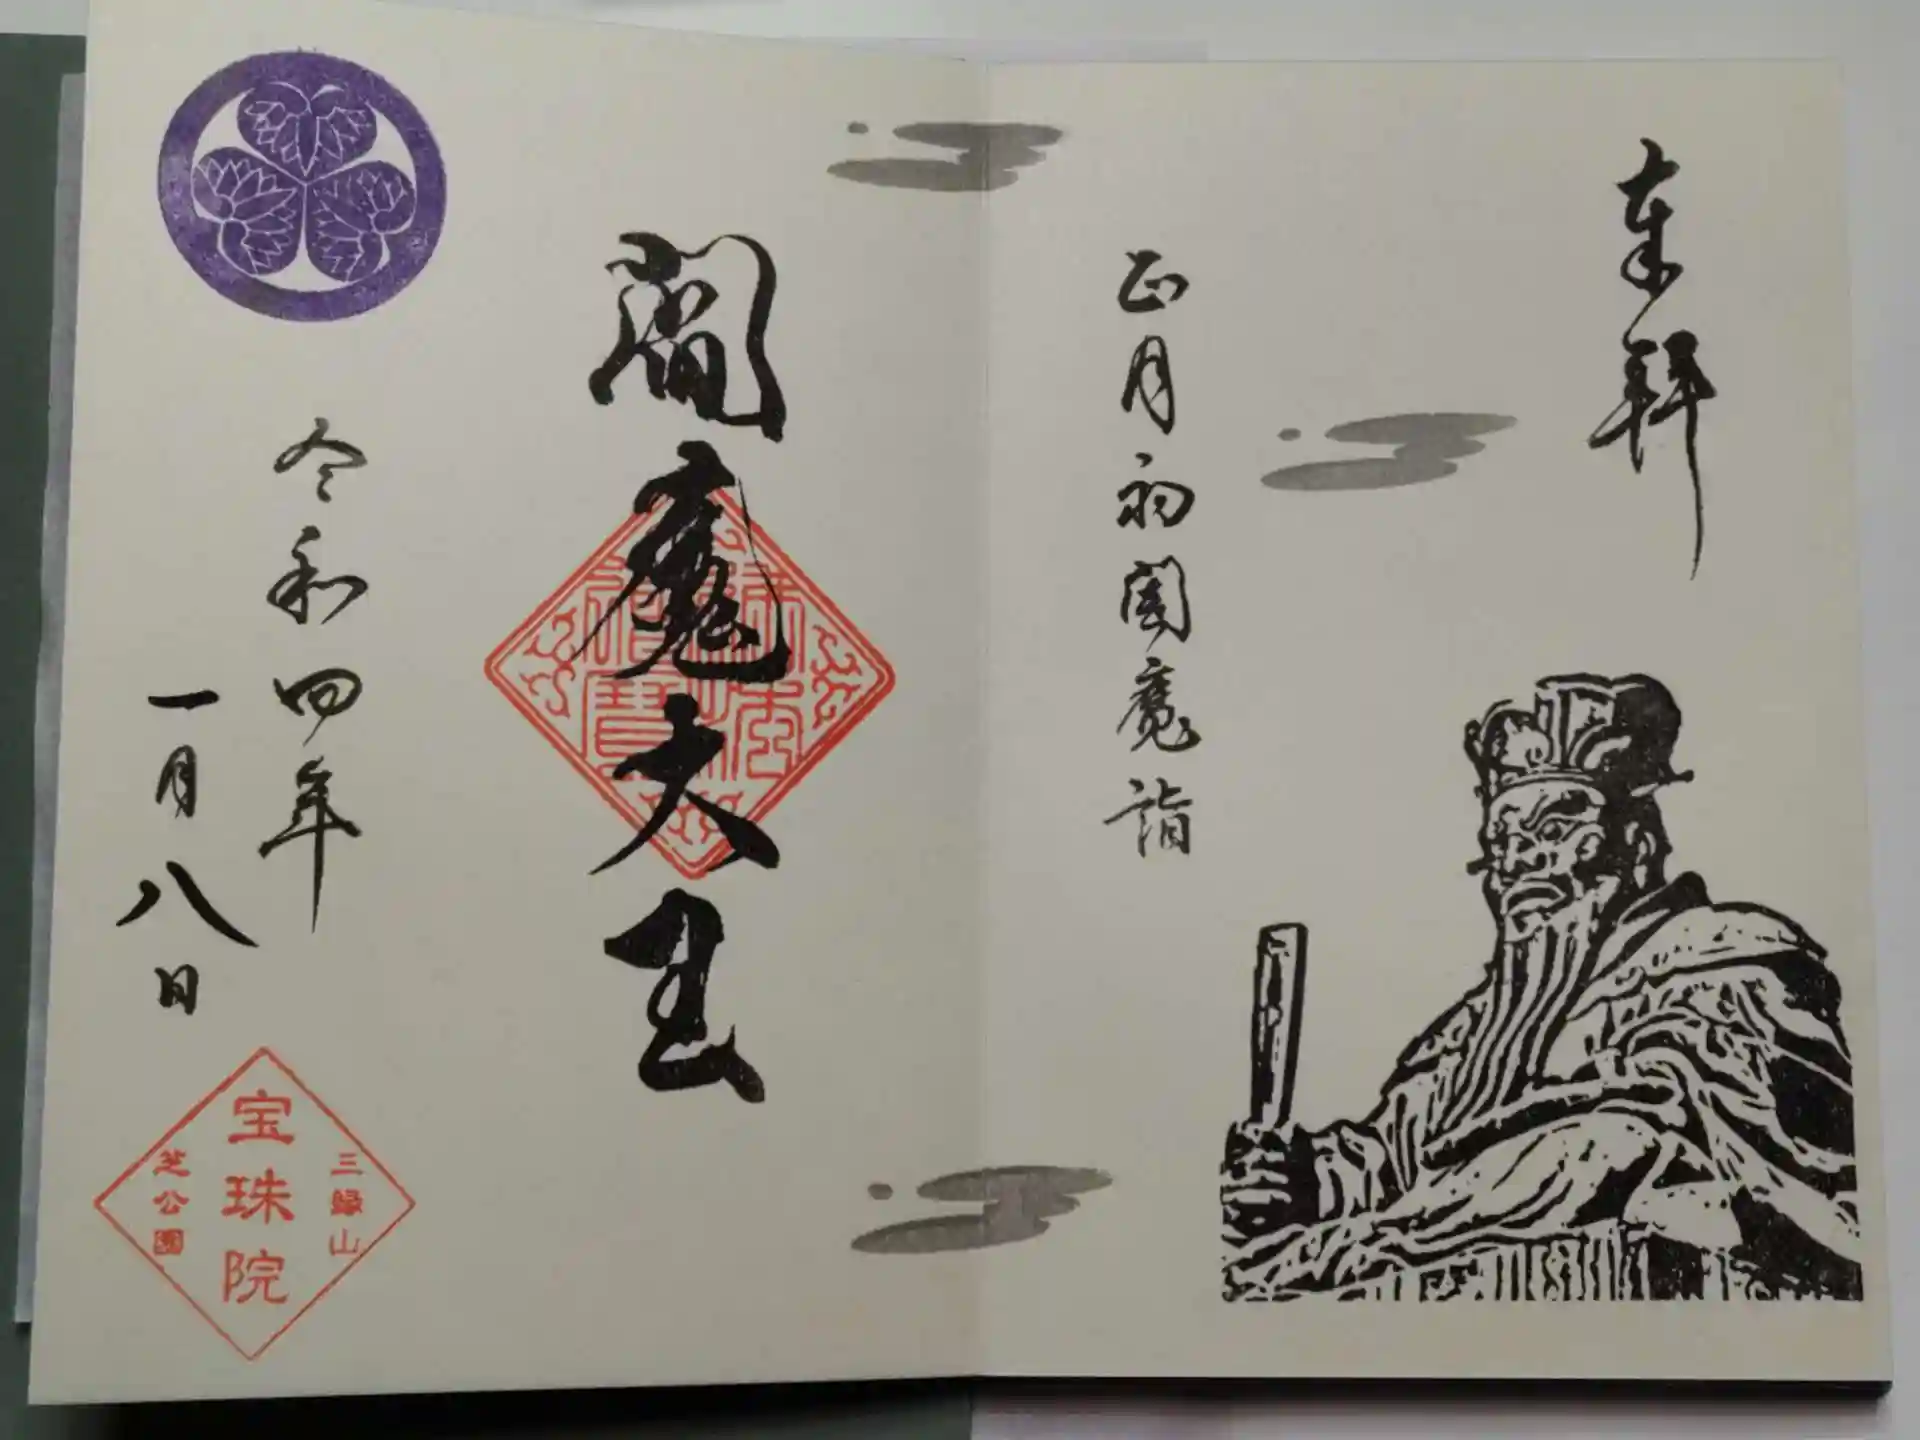 奉拝
正月初閻魔詣
閻魔大王
令和四年
一月八日
三縁山
宝珠院
芝公園